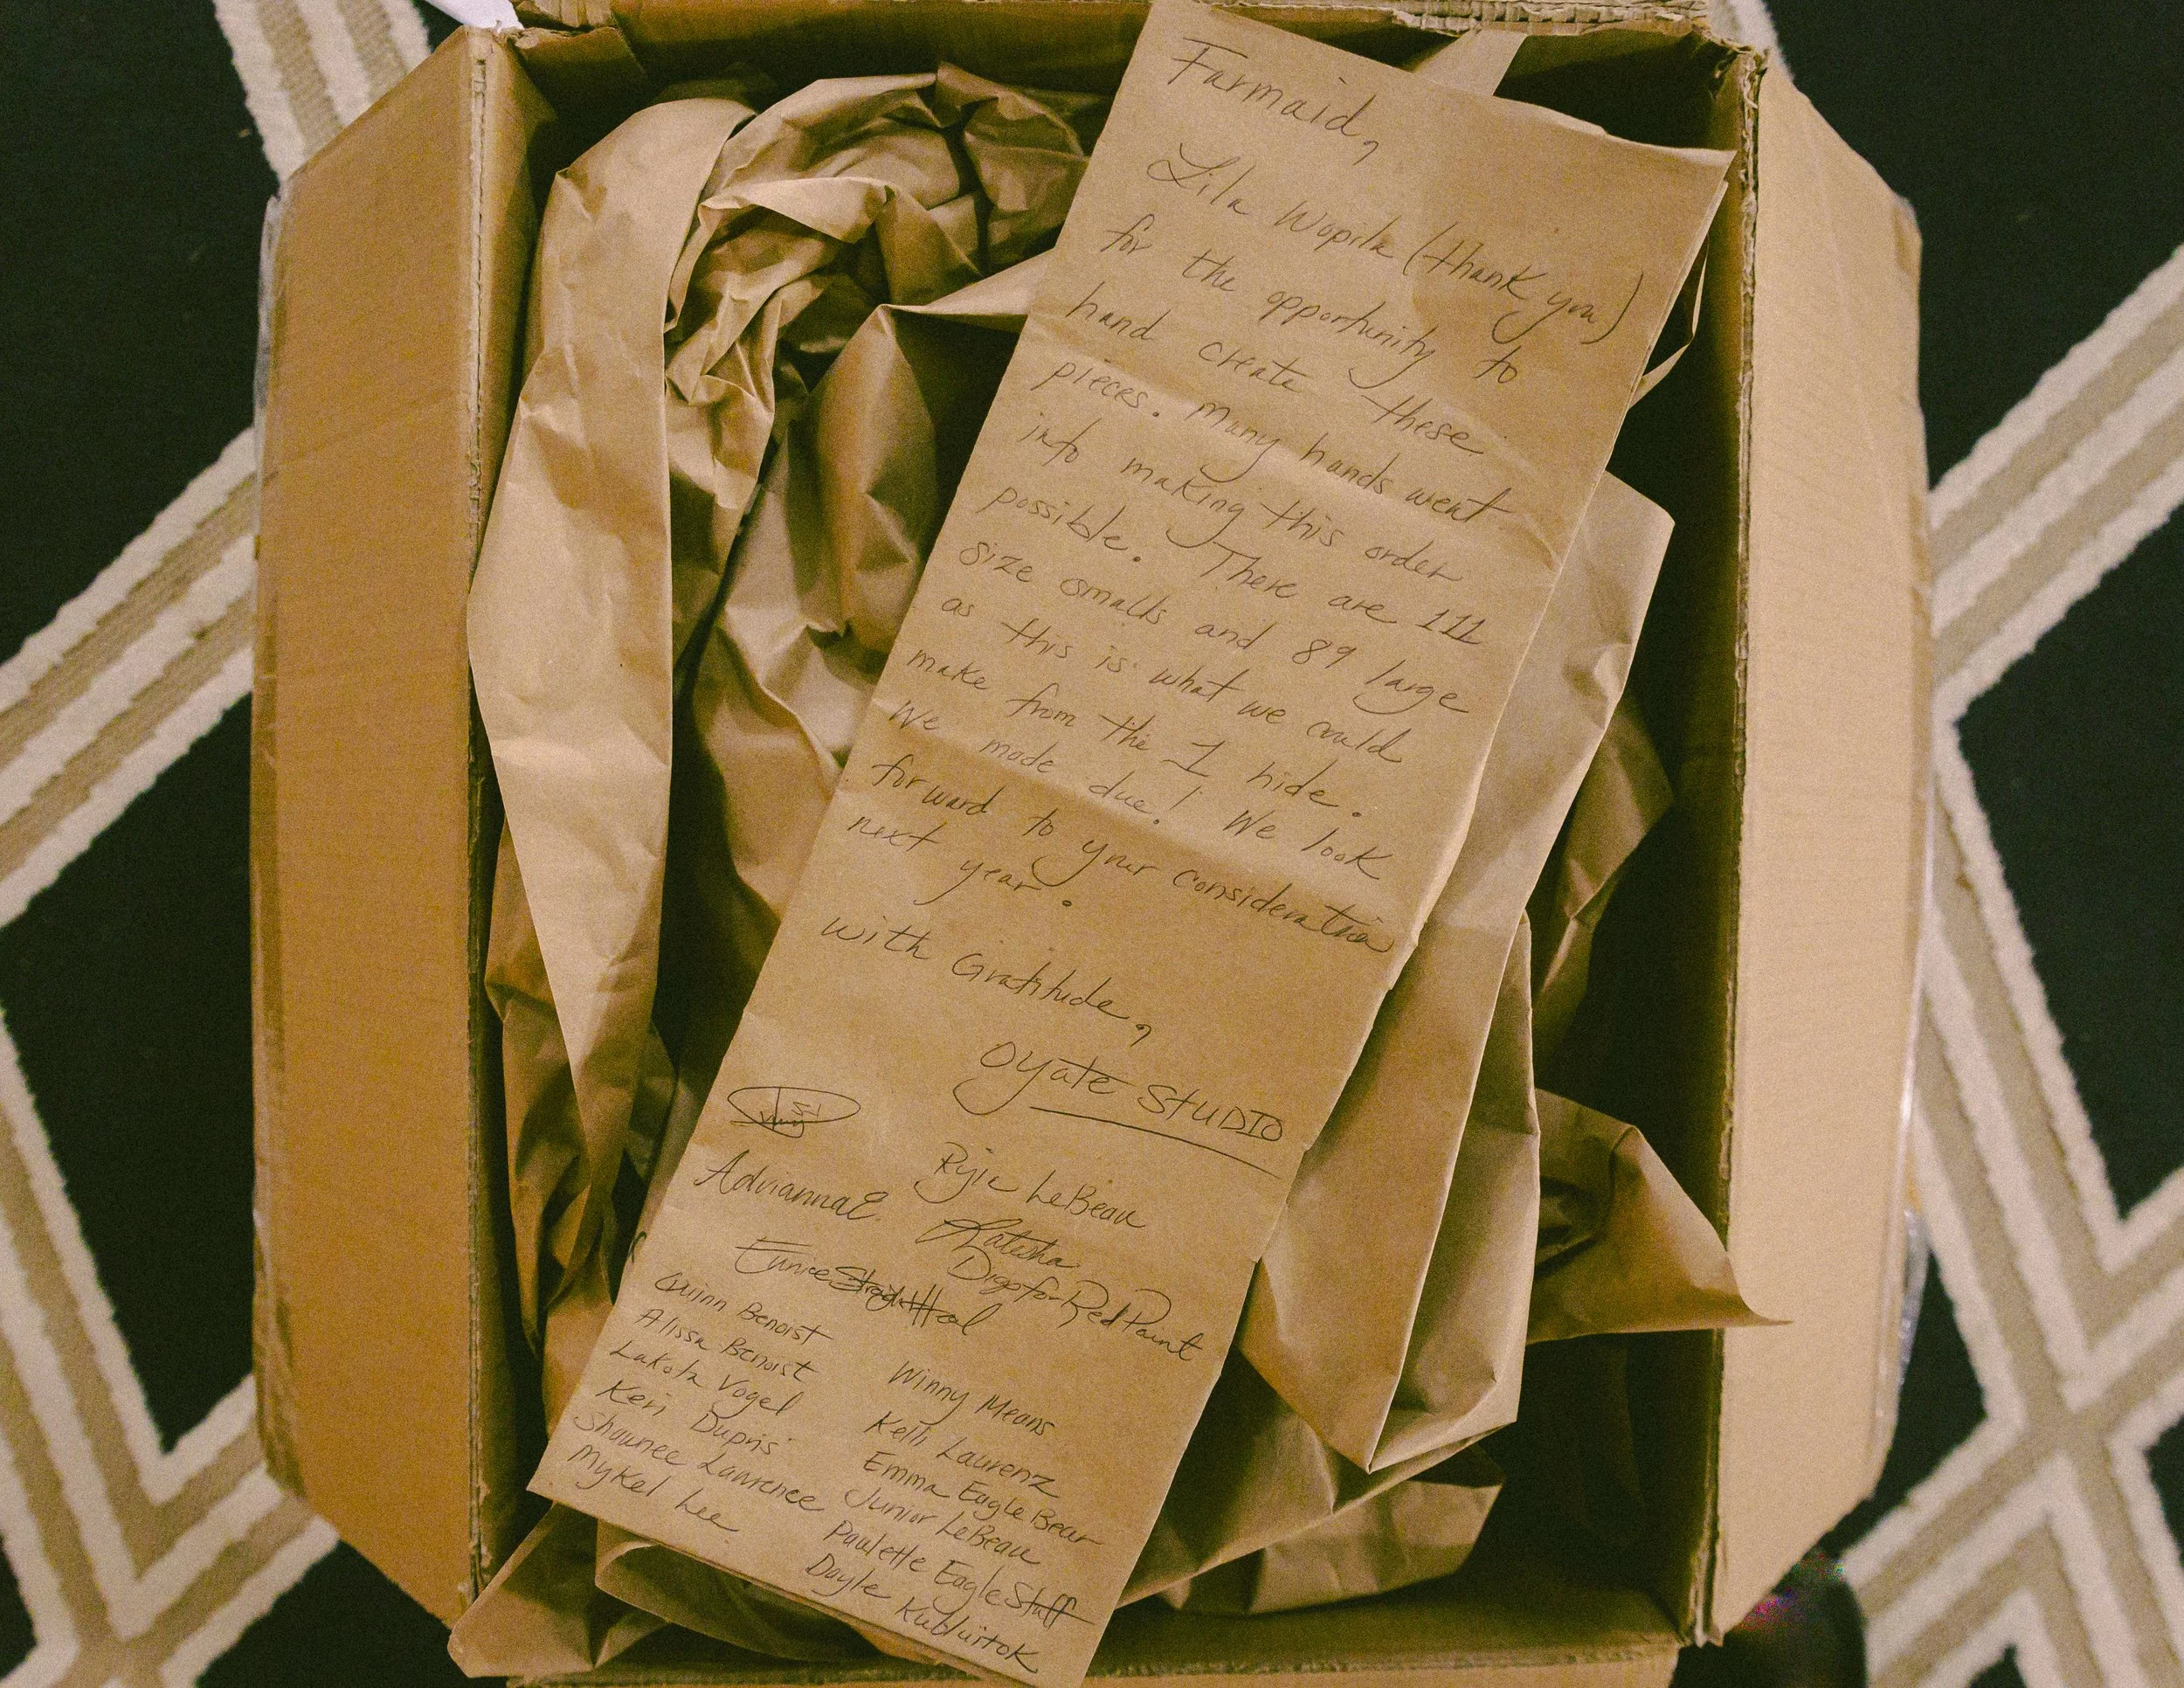 Farmaid,
Lila Wopila (thank you)
for the opportunity to
hand create these
pieces. Many hands went
into making this order
possible. There are 111
size smalls and 89 large
as this is what we could
make from the 1 hide.
We made due! We look
forward to your consideration
next year.
with Gratitude,
Oyate STUDIO
Ryie LeBeau
AdriannaE.
Katisha
DigsforRedPaint
Eunice Straight Hal
Quinn Benoist
Alissa Benoist
Lakota Vogel
Keri Dupris
Shaunee Lawrence
Mykel Lee
Winny Means
Kelli Laurenz
Emma Eagle Bear
Junior LeBeau
Paulette Eagle Staff
Dayle Kubluitok